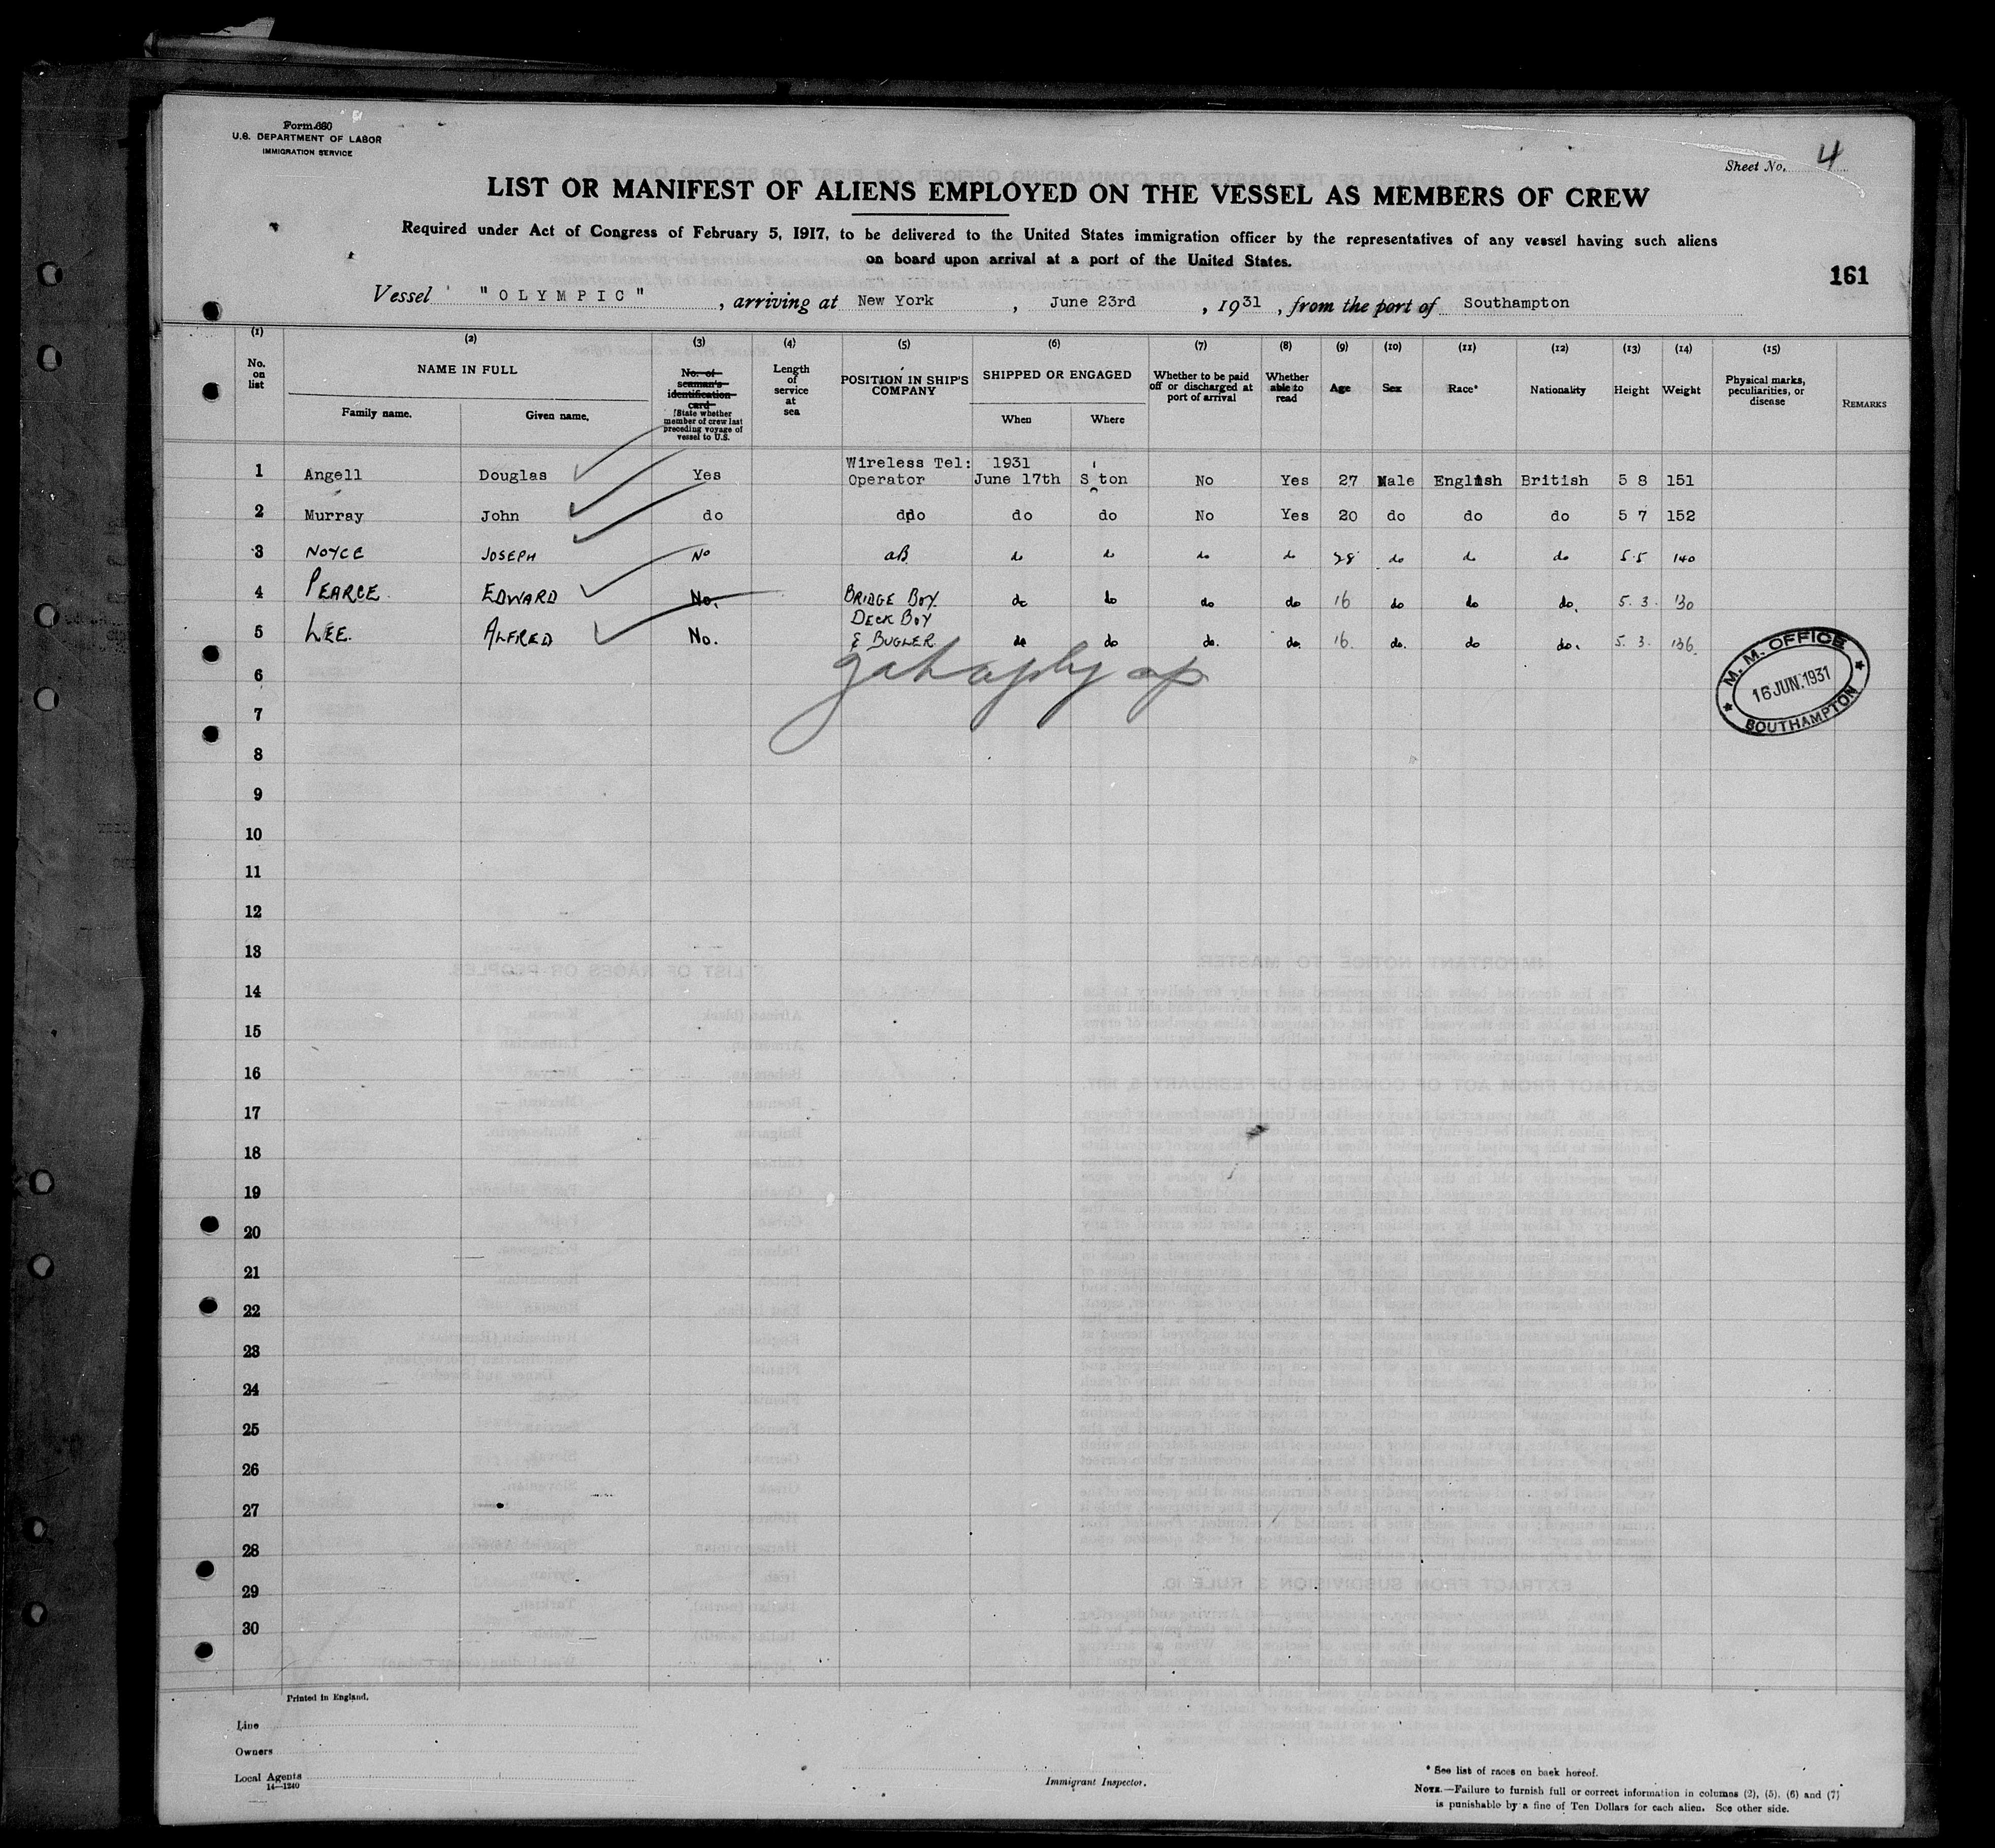 Form 680
U.S. DEPARTMENT OF LABOR
IMMIGRATION SERVICE
Sheet No. 4
LIST OR MANIFEST OF ALIENS EMPLOYED ON THE VESSEL AS MEMBERS OF CREW
Required under Act of Congress of February 5, 1917, to be delivered to the United States immigration officer by the representatives of any vessel having such aliens
on board upon arrival at a port of the United States.
161
Vessel "OLYMPIC", arriving at New York, June 23rd, 1931, from the port of Southampton
(1) (2) (3) (4) (5) (6) (7) (8) (9) (10) (11) (12) (13) (14) (15)
No. on list
NAME IN FULL
Family name. Given name.
No. of seaman's identification card
State whether member of crew last preceding voyage of vessel to U.S.
Length of service at sea
POSITION IN SHIP'S COMPANY
SHIPPED OR ENGAGED
When Where
Whether to be paid off or discharged at port of arrival
Whether able to read
Age
Sex
Race*
Nationality
Height
Weight
Physical marks, peculiarities, or disease
REMARKS
1 Angell Douglas Yes Wireless Tel: Operator 1931 June 17th S'ton No Yes 27 Male English British 5 8 151
2 Murray John do do do do No Yes 20 do do do 5 7 152
3 NOYCE JOSEPH No AB do do do do 28 do do do 5.5 140
4 PEARCE EDWARD No. BRIDGE BOY do do do do 16 do do do. 5. 3. 130
5 LEE. ALFRED No. DECK BOY & BUGLER do do do. do. 16. do. do do. 5. 3. 136.
6
7
M. M. OFFICE
16 JUN. 1931
SOUTHAMPTON
8
9
10
11
12
13
14
15
16
17
18
19
20
21
22
23
24
25
26
27
28
29
30
Printed in England.
Line
Owners
Local Agents
14—1240
Immigrant Inspector.
* See list of races on back hereof.
NOTE.—Failure to furnish full or correct information in columns (2), (5), (6) and (7)
is punishable by a fine of Ten Dollars for each alien. See other side.